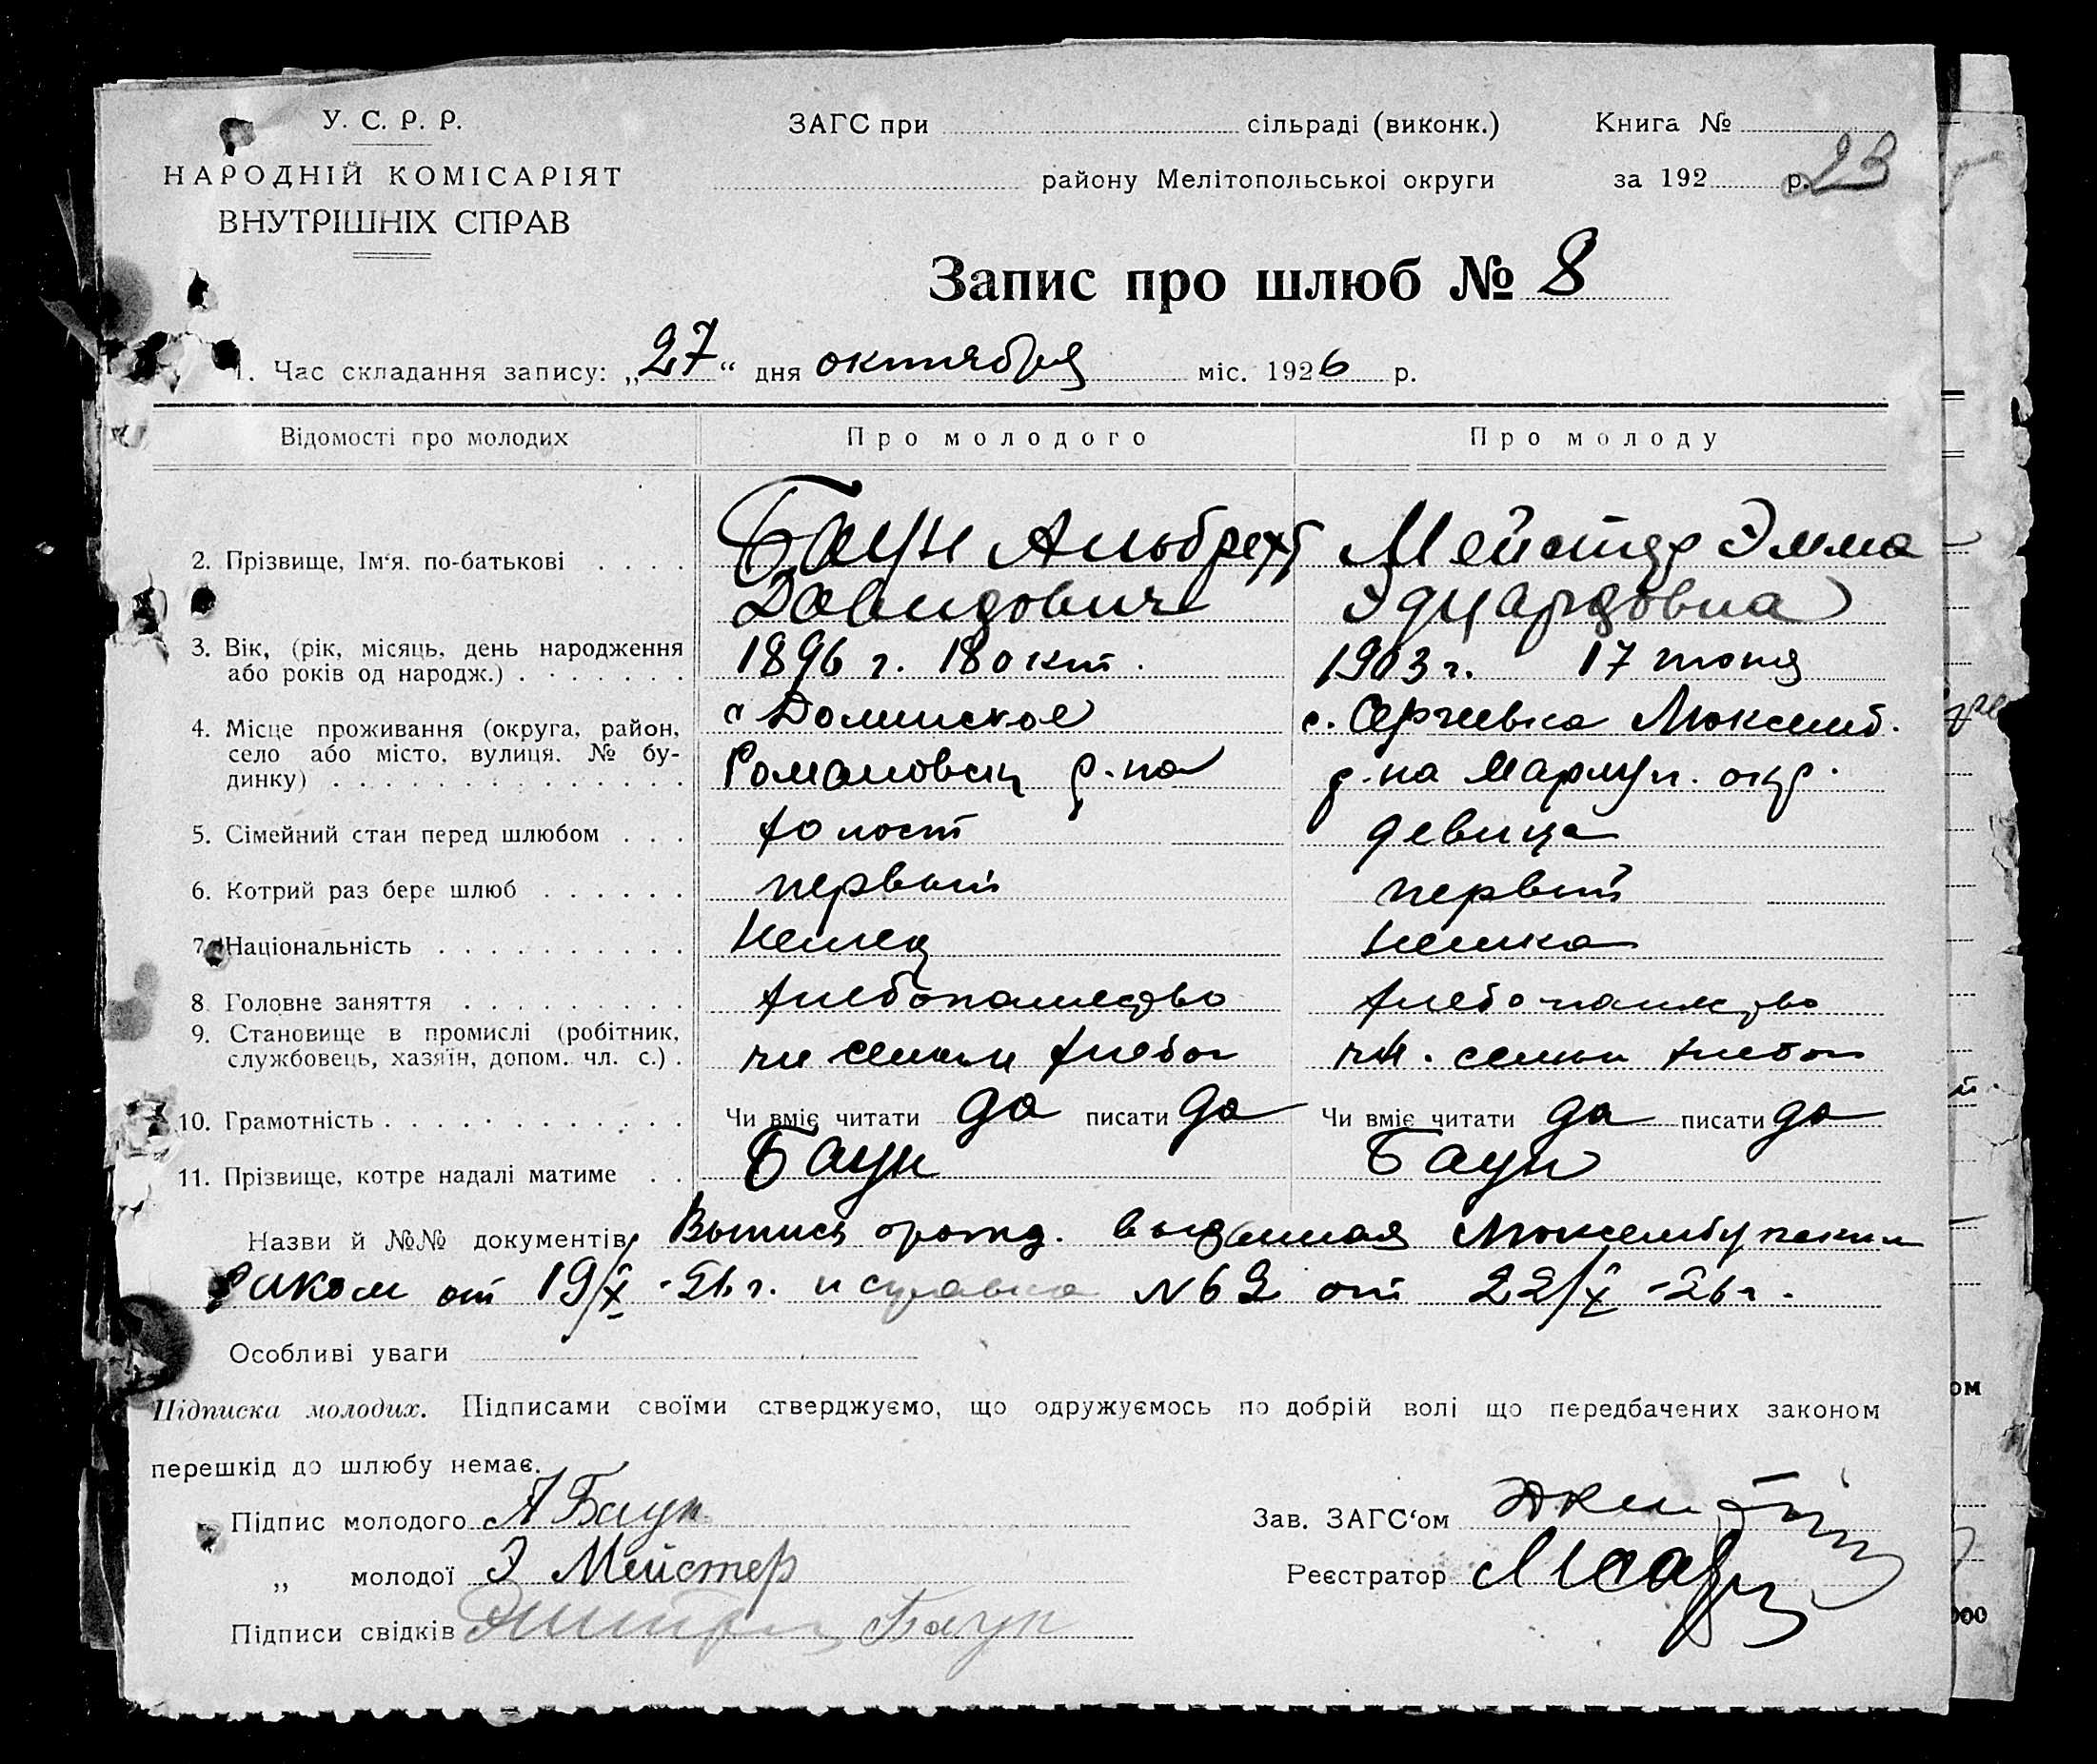 У. С. Р. Р.
НАРОДНІЙ КОМІСАРІЯТ
ВНУТРІШНІХ СПРАВ
ЗАГС при сільраді (виконк.)
району Мелітопольської округи
Книга №
за 192 р.
23
Запис про шлюб № 8
1. Час складання запису: „27“ дня октября міс. 1926 р.
Відомості про молодих Про молодого Про молоду
2. Прізвище, Ім'я, по-батькові Баун Альбрехт Мейстер Эмма
Давидович Эдуардовна
3. Вік, (рік, місяць, день народження 1896 г. 18 окт. 1903 г. 17
або років од народж.)
4. Місце проживання (округа, район, с. Сергиевка Люксемб.
село або місто, вулиця, № бу- Романовск р-на р-на Мариуп. окр.
динку)
5. Сімейний стан перед шлюбом холост девица
6. Котрий раз бере шлюб первый первый
7. Національність Немец немка
8. Головне заняття хлебопашество хлебопашество
9. Становище в промислі (робітник, чл семьи хлебоп чл. семьи хлебоп
службовець, хазяїн, допом. чл. с.)
10. Грамотність Чи вміє читати да писати да Чи вміє читати да писати да
11. Прізвище, котре надалі матиме Баун Баун
Назви й №№ документів Выпись о рожд. выданная Люксембургским
Риком от 19/X-26 г. и справка №62 от 22/X-26 г.
Особливі уваги
Підписка молодих. Підписами своїми стверджуємо, що одружуємось по добрій волі що передбачених законом
перешкід до шлюбу немає.
Підпис молодого А Баун
„ молодої Э Мейстер
Підписи свідків Баун
Зав. ЗАГС'ом
Реєстратор